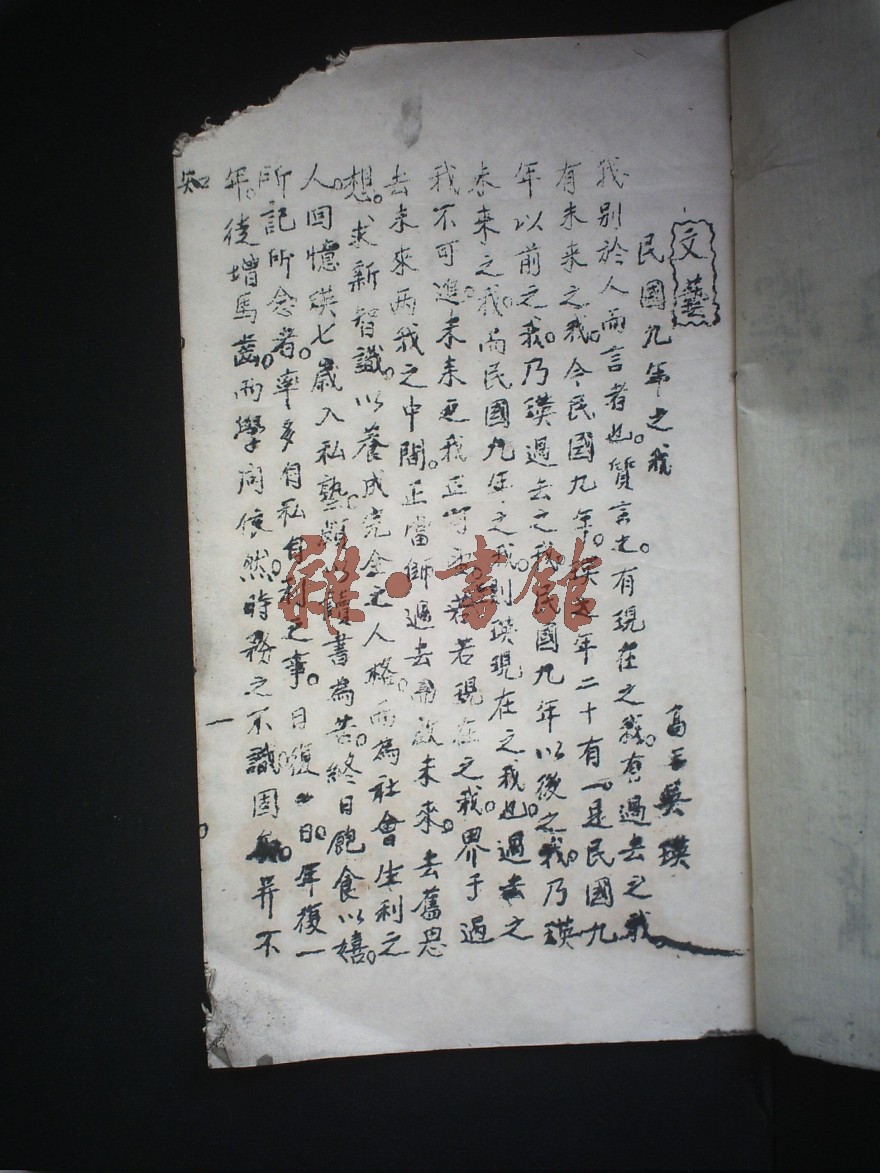 文藝
民國九年之我
高 英瑛
我別於人而言者也。質言之。有現在之我。有過去之我
有未来之我。今民國九年。瑛之年二十有一。是民國九
年以前之我。乃瑛過去之我。民國九年以後之我。乃瑛
未来之我。而民國九年之我。則瑛現在之我也。過去之
我不可進。未来之我正可 。若現在之我。界于過
去未來兩我之中間。正當師過去而啟未來。去舊思
想。求新智識。以養成完全之人格。而為社會生利之
人。回憶瑛七歲入私塾。以讀書為苦。終日飽食以嬉。
所記所念者。率多自私自利之事。日復一日。年復一
年。徒增馬齒。而學問依然。時務之不識固 。并不
知
一
雜·書館